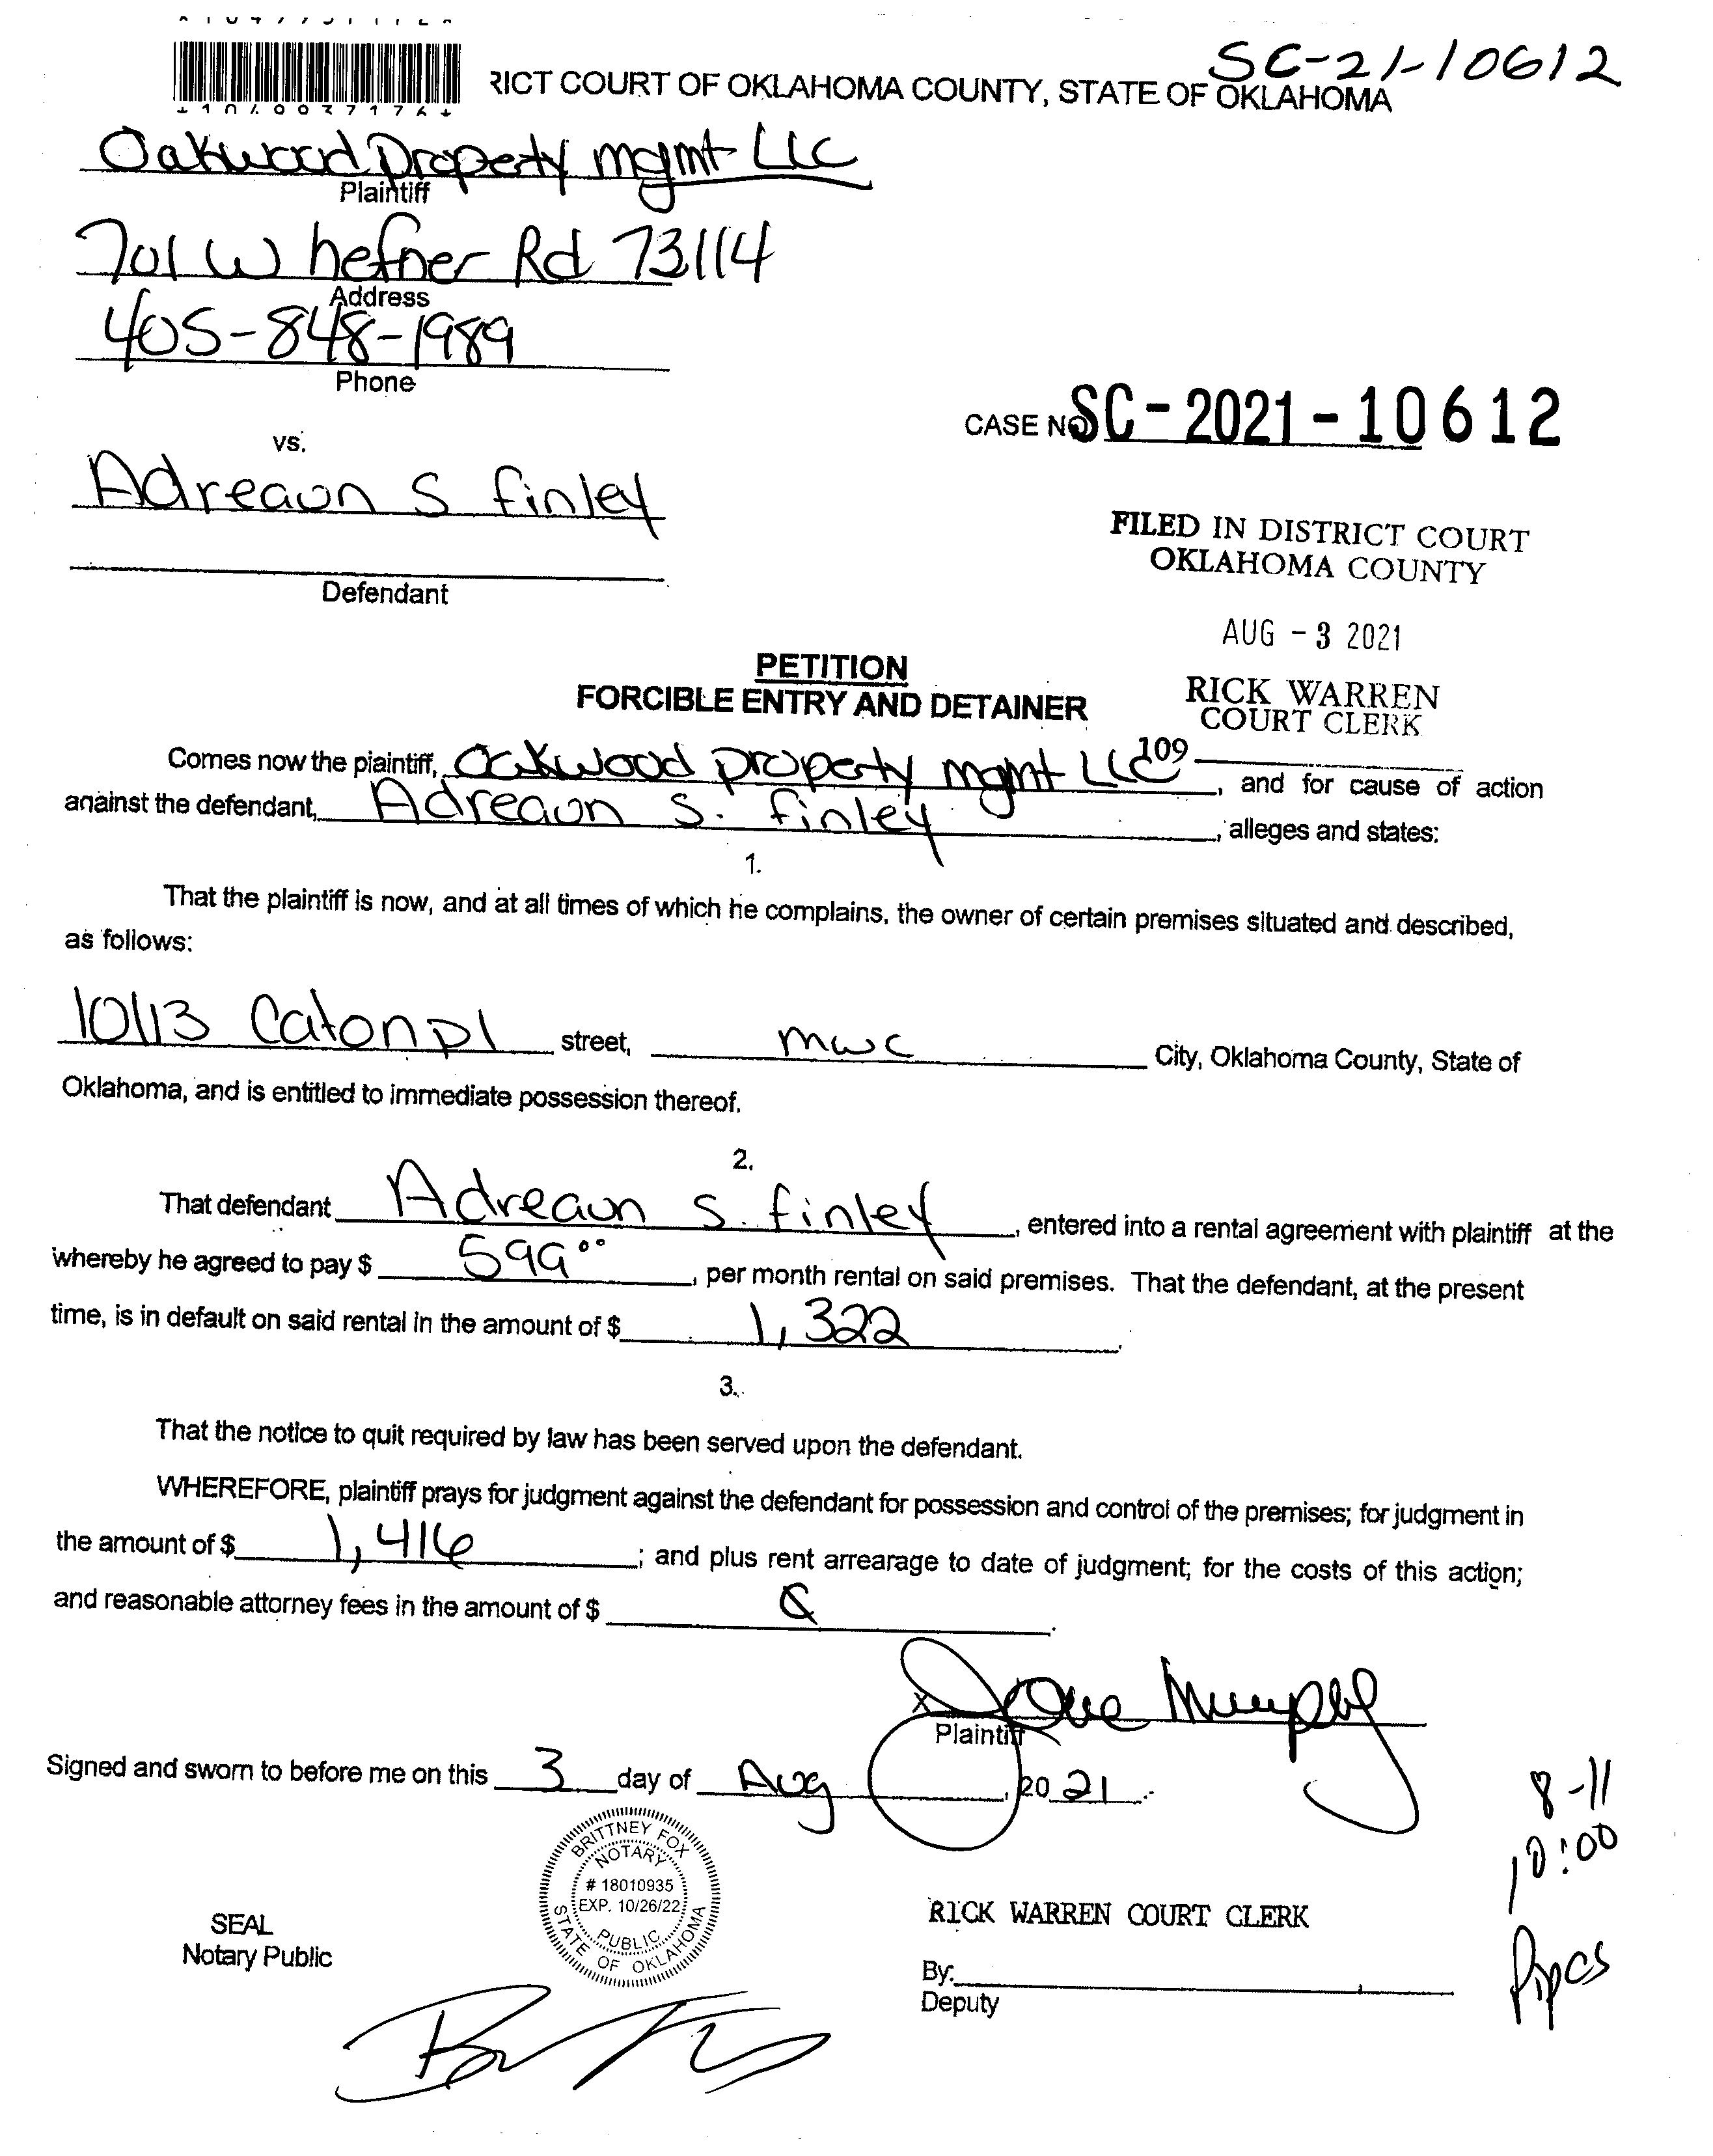 SC-21-10612
RICT COURT OF OKLAHOMA COUNTY, STATE OF OKLAHOMA
Oakwood Property mgmt LLC
Plaintiff
701 W hefner Rd 73114
Address
405-848-1989
Phone
CASE NO SC-2021-10612
vs.
Adreaun S finley
Defendant
FILED IN DISTRICT COURT
OKLAHOMA COUNTY
AUG - 3 2021
RICK WARREN
COURT CLERK
109
PETITION
FORCIBLE ENTRY AND DETAINER
Comes now the plaintiff, Oakwood property mgmt LLC, and for cause of action
against the defendant, Adreaun S. finley, alleges and states:
1.
That the plaintiff is now, and at all times of which he complains, the owner of certain premises situated and described,
as follows:
10113 Caton pl street, mwc City, Oklahoma County, State of
Oklahoma, and is entitled to immediate possession thereof.
2.
That defendant Adreaun S. finley, entered into a rental agreement with plaintiff at the
whereby he agreed to pay $ 599.00, per month rental on said premises. That the defendant, at the present
time, is in default on said rental in the amount of $ 1,322.
3.
That the notice to quit required by law has been served upon the defendant.
WHEREFORE, plaintiff prays for judgment against the defendant for possession and control of the premises; for judgment in
the amount of $ 1,416; and plus rent arrearage to date of judgment; for the costs of this action;
and reasonable attorney fees in the amount of $
X
Plaintiff
Signed and sworn to before me on this 3 day of Aug, 20 21.
8-11
10:00
BRITTNEY FOX
NOTARY
# 18010935
EXP. 10/26/22
PUBLIC
STATE OF OKLAHOMA
SEAL
Notary Public
RICK WARREN COURT CLERK
By:
Deputy